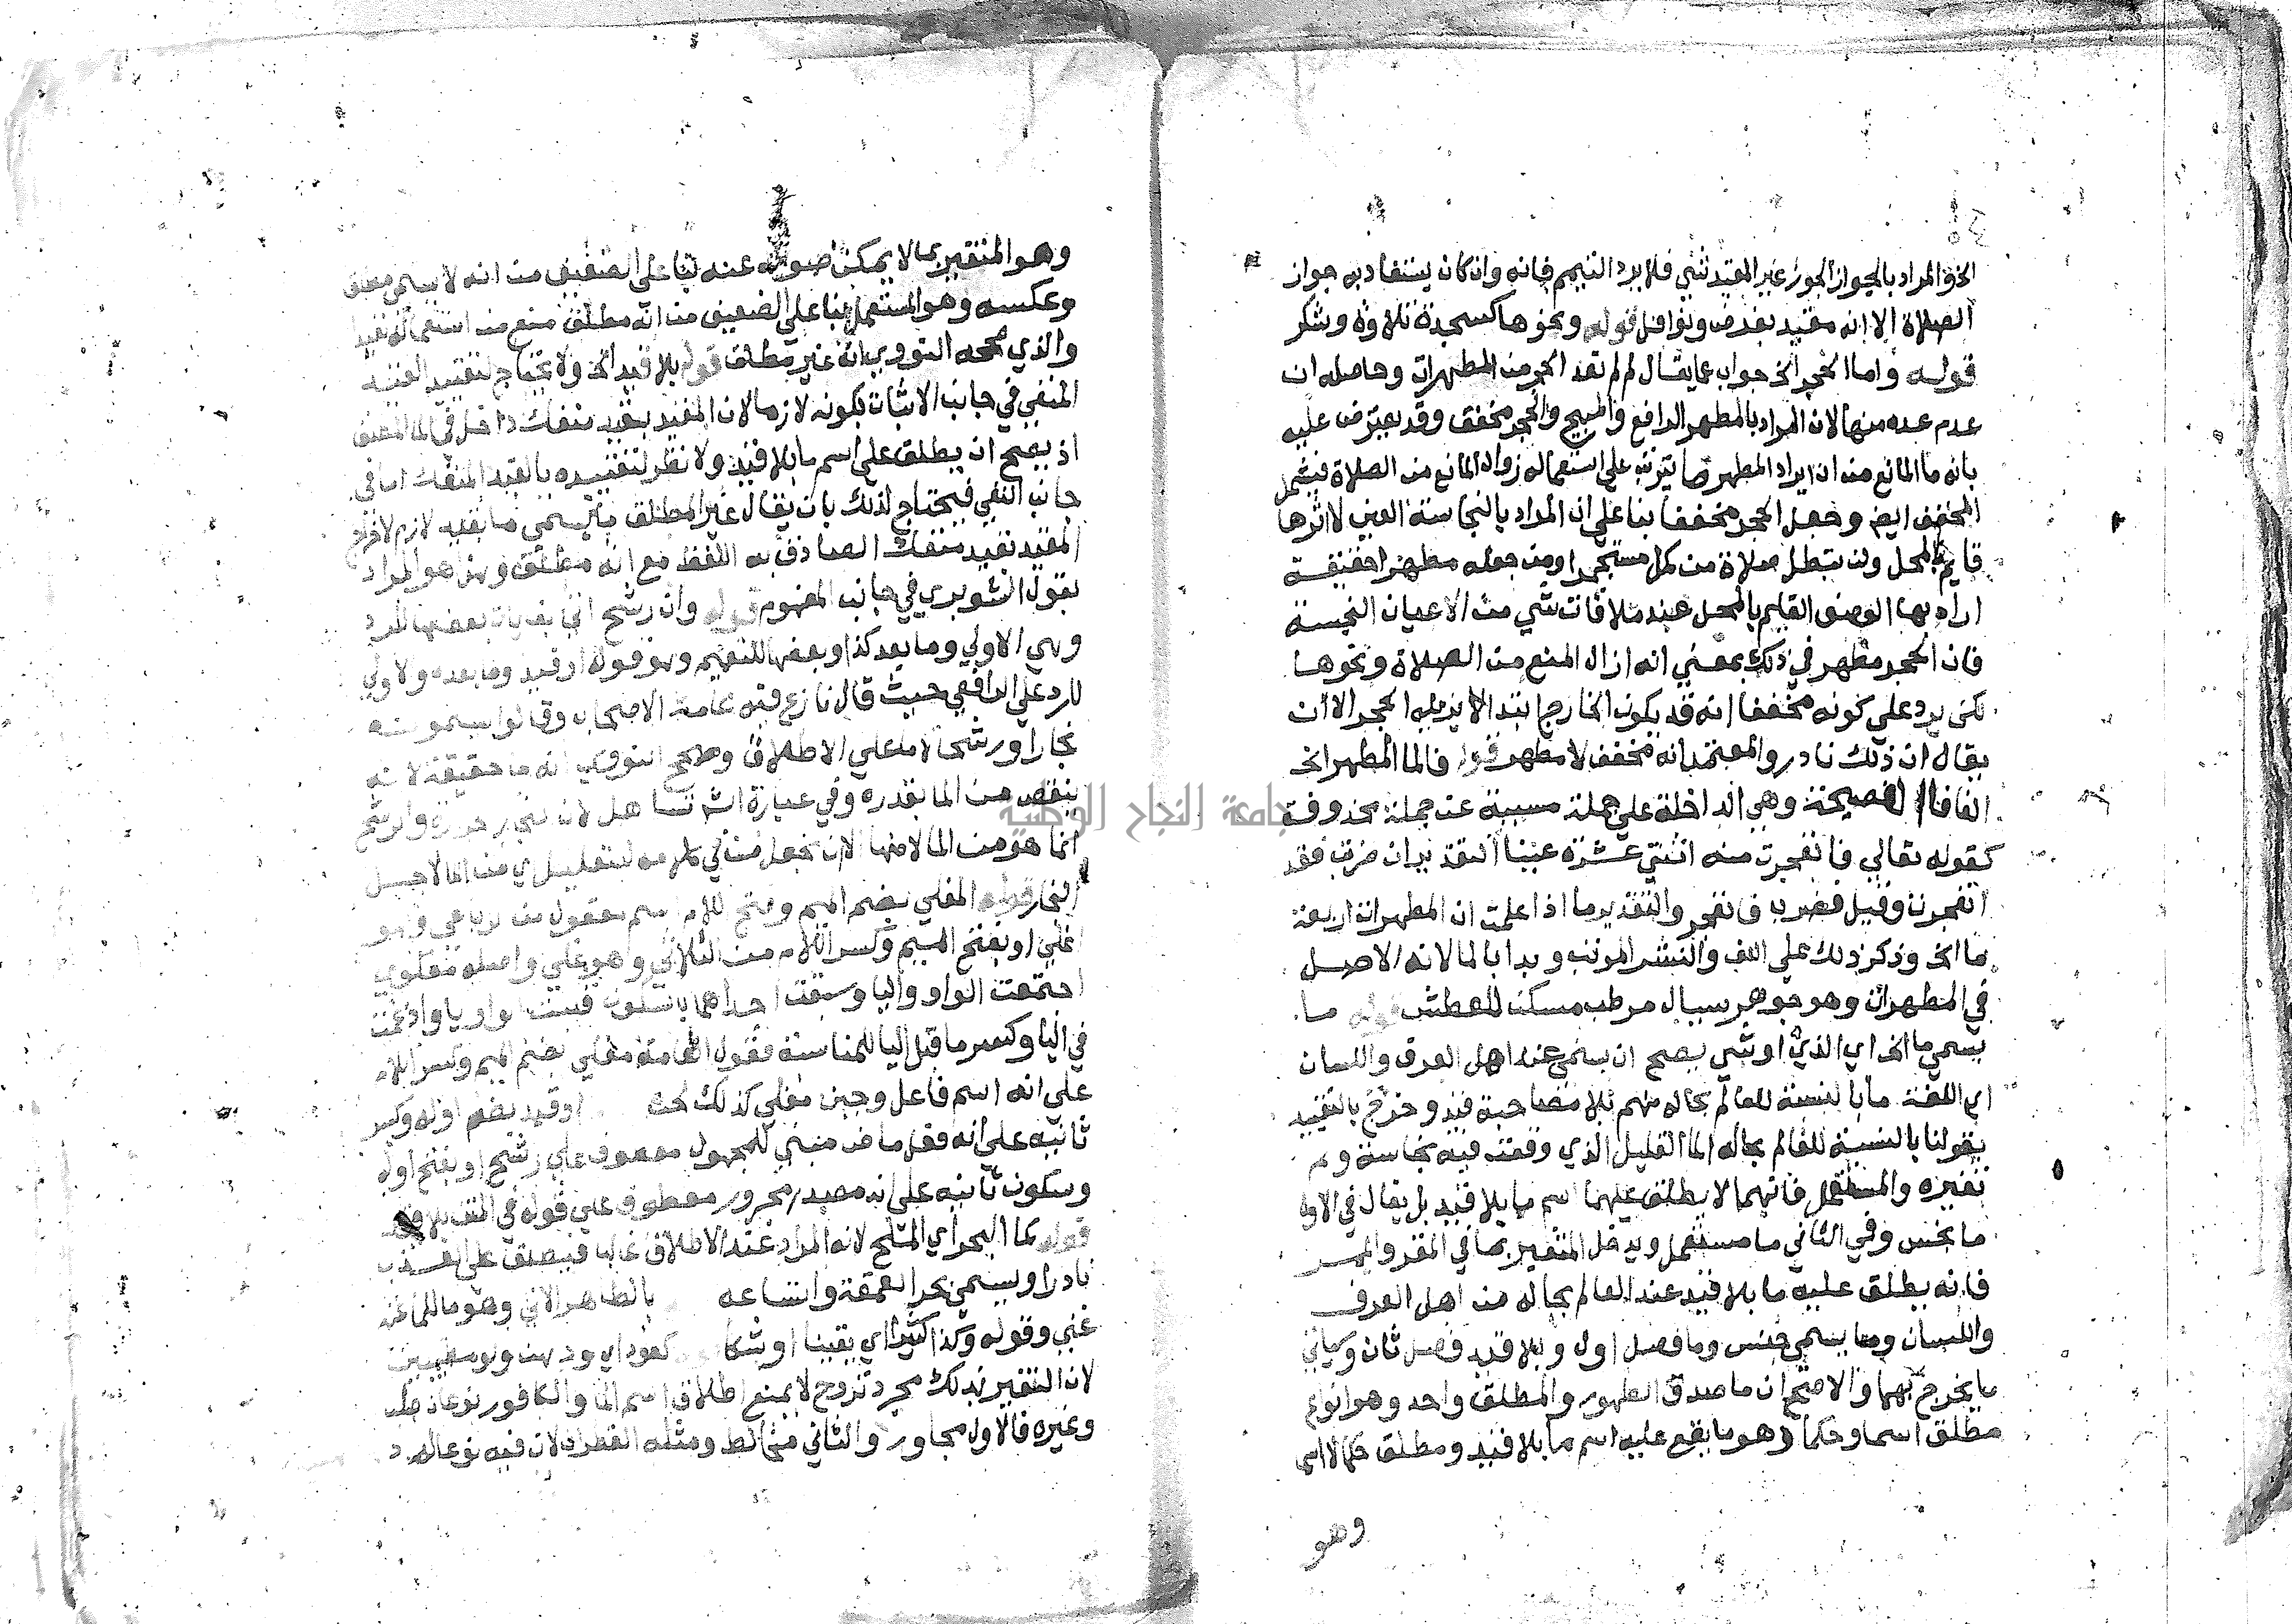 الخ والمراد بالجواز المجوز غير المقيد بشي فلا يرد التيمم فانه وان كان يستفاد به جواز
الصلاة الا انه مقيد بفرض ونوافل قوله ونحوها كسجدة تلاوة وشكر
قوله واما الحجر الخ جواب عما يقال لم لم تعد الحجر من المطهرات وحاصله ان
عدم عده منها لان المراد بالمطهر الرافع والمبيح والحجر مخفف وقد يعترض عليه
بانه ما المانع من ان يراد المطهر ما يترتب على استعماله زوال المانع من الصلاة فيشمل
المخفف ايضا وجعل الحجر مخففا بنا على ان المراد بالنجاسة العين لا اثرها
قايم بالمحل ولذا تبطل صلاة من حمل مستجمرا ومن جعله مطهرا حقيقة
اراد بها الوصف القايم بالمحل عند ملاقات شي من الاعيان النجسة
فان الحجر مطهر في ذلك بمعني انه ازال المنع من الصلاة ونحوها
لكن يرد على كونه مخففا انه قد يكون الخارج ابتدا لا يزيله الحجر الا ان
يقال ان ذلك نادر والمعتمد انه مخفف لا مطهر قوله فالما المطهر الخ
الفا فا الفصيحة وهي الداخلة على جملة مسببة عن جملة محذوفة
كقوله تعالي فانفجرت منه اثنتي عشرة عينا التقدير ان ضربت فقد
انفجرت وقيل فضرب فانفجر والتقدير ما اذا علمت ان المطهرات اربعة
ما الخ وذكر ذلك علي اللف والنشر المرتب وبدا بالما لانه الاصل
في المطهرات وهو جوهر سيال مرطب مسكن للعطش قوله ما
يسمي ما الخ اي الذي او شي يصح ان يسمي عند اهل العرف واللسان
اي اللغة ما بالنسبة للعالم بحاله منهم بلا مصاحبة قيد وخرج بالتقييد
بقولنا بالنسبة للعالم بحاله الما القليل الذي وقعت فيه نجاسة ولم
تغيره والمستعمل فانهما لا يطلق عليهما اسم ما بلا قيد بل يقال في الاول
ما نجس وفي الثاني ما مستعمل ويدخل المتغير بما في المقر والممر
فانه يطلق عليه ما بلا قيد عند العالم بحاله من اهل العرف
واللسان وما يسمي جنس وما فصل اول وبلا قيد فصل ثان وسياتي
ما يخرج بهما والاصح ان ما صدق الطهور والمطلق واحد وهو انواع
مطلق اسما وحكما وهو ما يقع عليه اسم ما بلا قيد ومطلق حكما لا اسما
وهو
وهو المتغير بما لا يمكن صونه عنه بنا على الضعيف من انه لا يسمي مطلق
وعكسه وهو المستعمل بنا على الضعيف من انه مطلق منع من استعماله تعبدا
والذي صححه النووي انه غير مطلق قوله بلا قيد الخ ولا يحتاج لتقييد القيد
المنفي في جانب الاثبات بكونه لازما لان المقيد بقيد منفك داخل في الما المطلق
اذ يصح ان يطلق على اسم ما بلا قيد ولا نظر لتقييده بالقيد المنفك اما في
جانب النفي فيحتاج لذلك بان يقال غير المطلق ما يسمي ما بقيد لازم لاخراج
المقيد بقيد منفك الصادق به اللفظ مع انه مطلق وهذا هو المراد
بقول الشوبري في جانب المفهوم قوله وان رشح الخ بغايات بعضها للرد
وهي الاولي وما بعد كذا وبعضها للتعميم وهو قوله او قيد وما بعده والاولي
للرد على الرافعي حيث قال نازع فيه عامة الاصحاب وقالوا يسمونه
بخارا ورشحا لا ما علي الاطلاق وصحح النووي انه ما حقيقة لانه
ينقص من الما بقدره وفي عبارة الش تساهل لان
انما هو من الما لا منها الا ان تجعل من في كلامه للتعليل اي من الما لاجل
البخار قوله المغلي بضم الميم وفتح اللام اسم مفعول من الرباعي وهو
اغلي او بفتح الميم وكسر اللام من الثلاثي وهو غلي واصله مغلوي
اجتمعت الواو واليا وسبقت احداهما بالسكون قلبت الواو يا وادغمت
في اليا وكسر ما قبل اليا للمناسبة فقول العامة مغلي بضم الميم وكسر اللام
على انه اسم فاعل وجبن مغلي كذلك لحن او قيد بضم اوله وكسر
ثانيه على انه فعل ماض مبني للمجهول معطوف على رشح او بفتح اوله
وسكون ثانيه على انه مصدر مجرور معطوف على قوله في المتن بلا قيد
قوله كما البحر اي الملح لانه المراد عند الاطلاق غالبا فيطلق على العذب
نادرا ويسمي بحرا لعمقه واتساعه بالطاهر الاتي وهو ما للما عنه
غني وقوله وكذا كثيرا اي يقينا او شكا كعود اي ودهن ولو مطيبين
لان التغير بذلك مجرد تروح لا يمنع اطلاق اسم الما والكافور نوعان صلب
وغيره فالاول مجاور والثاني مخالط ومثله القطران لان فيه نوعا له د
جامعة النجاح الوطنية